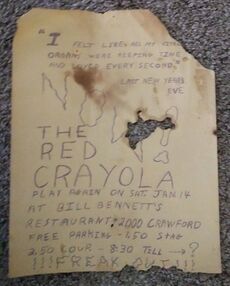 "I FELT LIKE ALL MY
ORGANS WERE KEEPING TIME
AND LOVED EVERY SECOND."
LAST NEW YEARS
EVE
NOW!
THE
RED
CRAYOLA
PLAY AGAIN ON SAT. JAN. 14
AT BILL BENNETT'S
RESTAURANT: 2000 CRAWFORD
FREE PARKING - 1.50 STAG
2.50 COUR - 8:30 TELL → ?
!!!FREAK OUT!!!